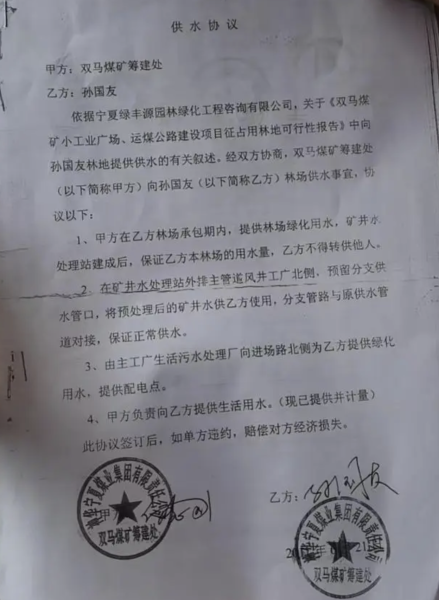 供水协议
甲方：双马煤矿筹建处
乙方：孙国友
依据宁夏绿丰源园林绿化工程咨询有限公司，关于《双马煤
矿小工业广场、运煤公路建设项目征占用林地可行性报告》中向
孙国友林地提供供水的有关叙述。经双方协商，双马煤矿筹建处
（以下简称甲方）向孙国友（以下简称乙方）林场供水事宜，协
议以下：
1、甲方在乙方林场承包期内，提供林场绿化用水，矿井水
处理站建成后，保证乙方本林场的用水量，乙方不得转供他人。
2、在矿井水处理站外排主管道风井工广北侧、预留分支供
水管口，将预处理后的矿井水供乙方使用，分支管路与原供水管
道对接，保证正常供水。
3、由主工广生活污水处理厂向进场路北侧为乙方提供绿化
用水，提供配电点。
4、甲方负责向乙方提供生活用水。（现已提供并计量）
此协议签订后，如单方违约，赔偿对方经济损失。
甲
乙方：孙国友
神华宁夏煤业集团有限责任公司
双马煤矿筹建处
神华宁夏煤业集团有限责任公司
双马煤矿筹建处